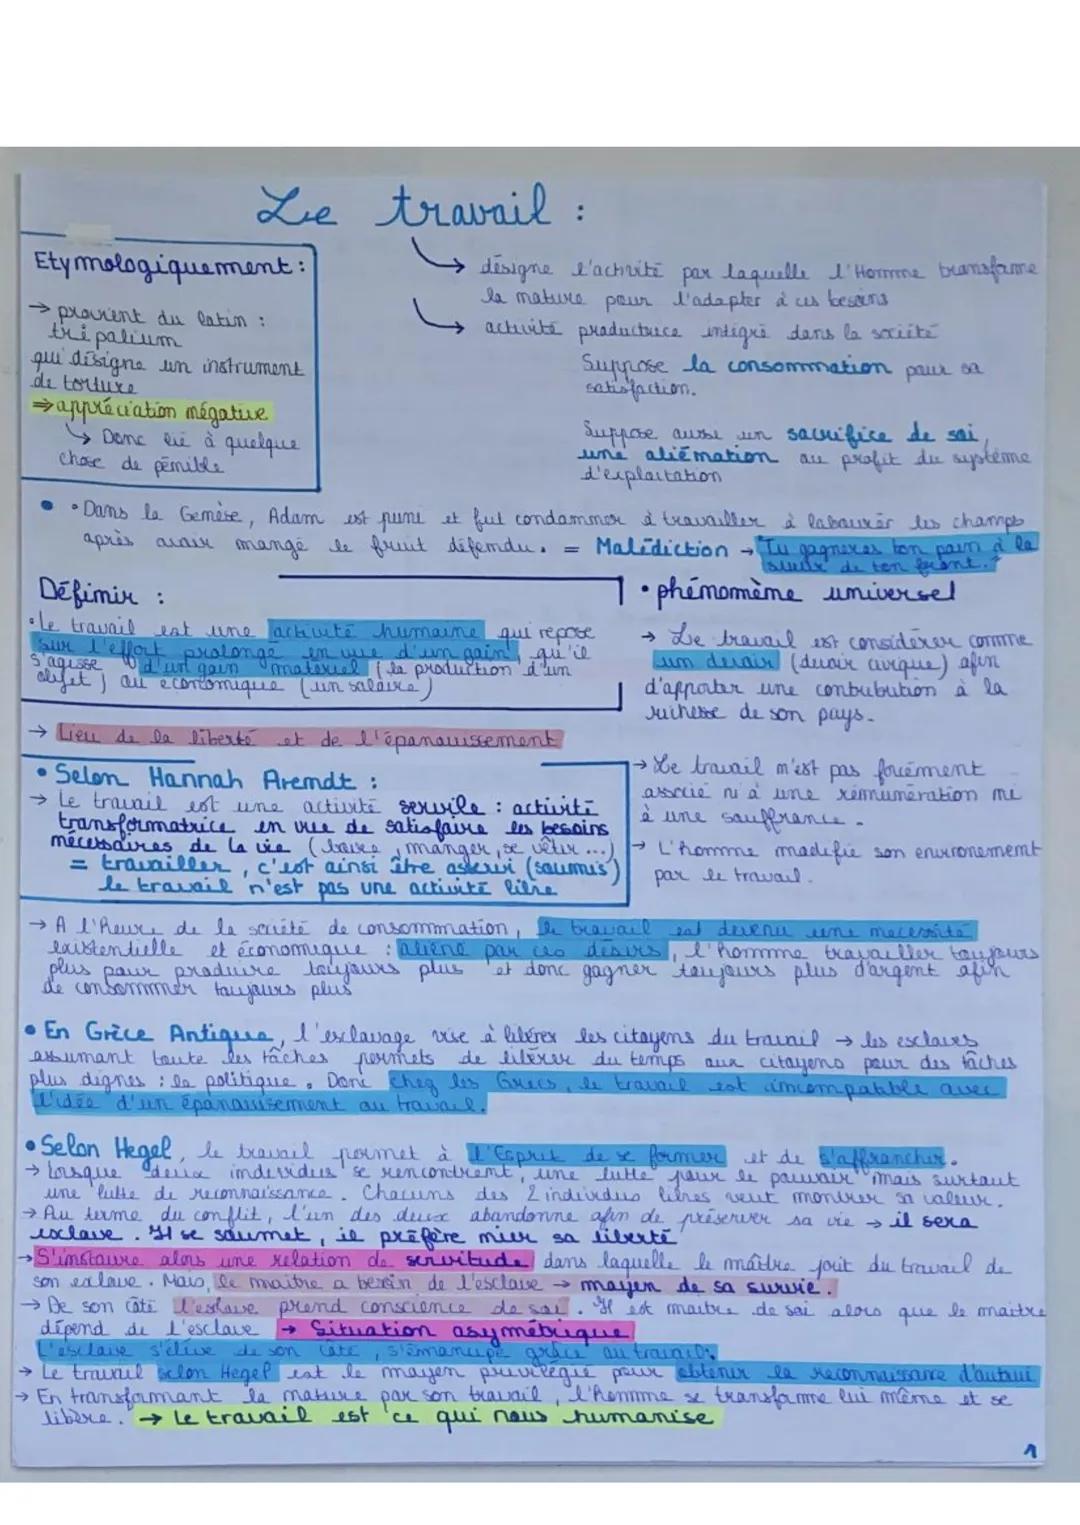 Le travail :
Etymologiquement :
→ provient du latin :
tripalium
qui désigne un instrument
de torture
⇒ appréciation négative
↳ Donc lié à quelque
chose de pénible
↳ désigne l'activité par laquelle l'Homme transforme
la nature pour l'adapter à ces besoins
↳ activité productrice intégré dans la société
Suppose la consommation pour sa
satisfaction.
Suppose aussi un sacrifice de soi,
une aliénation au profit du système
d'exploitation
• Dans la Genèse, Adam est puni et fut condamner à travailler à labourer les champs
après avoir mangé le fruit défendu. = Malédiction → "Tu gagneras ton pain à la
sueur de ton front."
Définir :
• Le travail est une activité humaine qui repose
sur l'effort prolongé en vue d'un gain, qu'il
s'agisse d'un gain matériel (la production d'un
objet) ou économique (un salaire)
→ Lieu de la liberté et de l'épanouissement
• phénomène universel
→ Le travail est considérer comme
un devoir (devoir civique) afin
d'apporter une contribution à la
richesse de son pays.
→ Le travail n'est pas forcément
associé ni à une rémunération ni
à une souffrance.
→ L'homme modifie son environement
par le travail.
• Selon Hannah Arendt :
→ Le travail est une activité servile : activité
transformatrice en vue de satisfaire les besoins
nécessaires de la vie (boire, manger, se vêtir...)
= travailler, c'est ainsi être asservi (soumis)
le travail n'est pas une activité libre
→ A l'heure de la société de consommation, le travail est devenu une necessité
existentielle et économique : aliéné par ces désirs, l'homme travailler toujours
plus pour produire toujours plus et donc gagner toujours plus d'argent afin
de consommer toujours plus
• En Grèce Antique, l'esclavage vise à libérer les citoyens du travail → les esclaves
assumant toute les tâches permets de libérer du temps aux citoyens pour des tâches
plus dignes : la politique. Donc chez les Grecs, le travail est imcompatible avec
l'idée d'un épanouissement au travail.
• Selon Hegel, le travail permet à l'Esprit de se former et de s'affranchir.
→ Lorsque deux individus se rencontrent, une lutte pour le pouvoir mais surtout
une lutte de reconnaissance. Chacuns des 2 individus libres veut montrer sa valeur.
→ Au terme du conflit, l'un des deux abandonne afin de préserver sa vie → il sera
esclave. Il se soumet, il préfère nier sa liberté
→ S'instaure alors une relation de servitude dans laquelle le maître jouit du travail de
son esclave. Mais, le maitre a besoin de l'esclave → moyen de sa survie.
→ De son côté l'esclave prend conscience de soi. Il est maitre de soi alors que le maitre
dépend de l'esclave → Situation asymétrique
L'esclave s'élève de son côté, s'émancipe grâce au travail.
→ Le travail selon Hegel est le moyen privilégié pour obtenir la reconnaissance d'autrui
→ En transformant la nature par son travail, l'homme se transforme lui même et se
libère. → Le travail est ce qui nous humanise
1